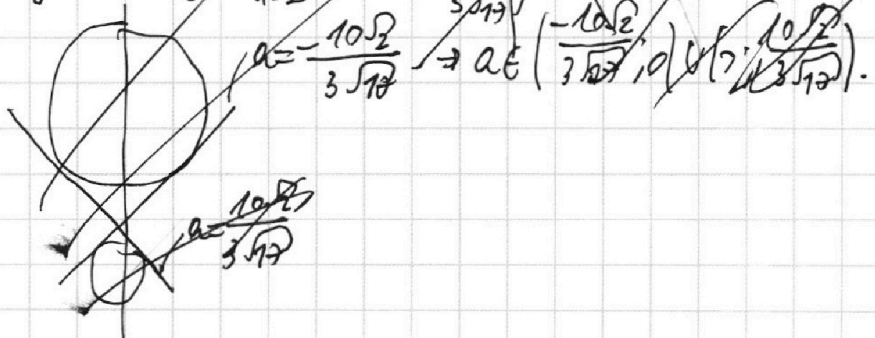 a = -10√2 / 3√17 → a ∈ ( -10√2 / 3√17 ; 0) ∪ ( ; 10√2 / 3√17 ).
a = 10√2 / 3√17